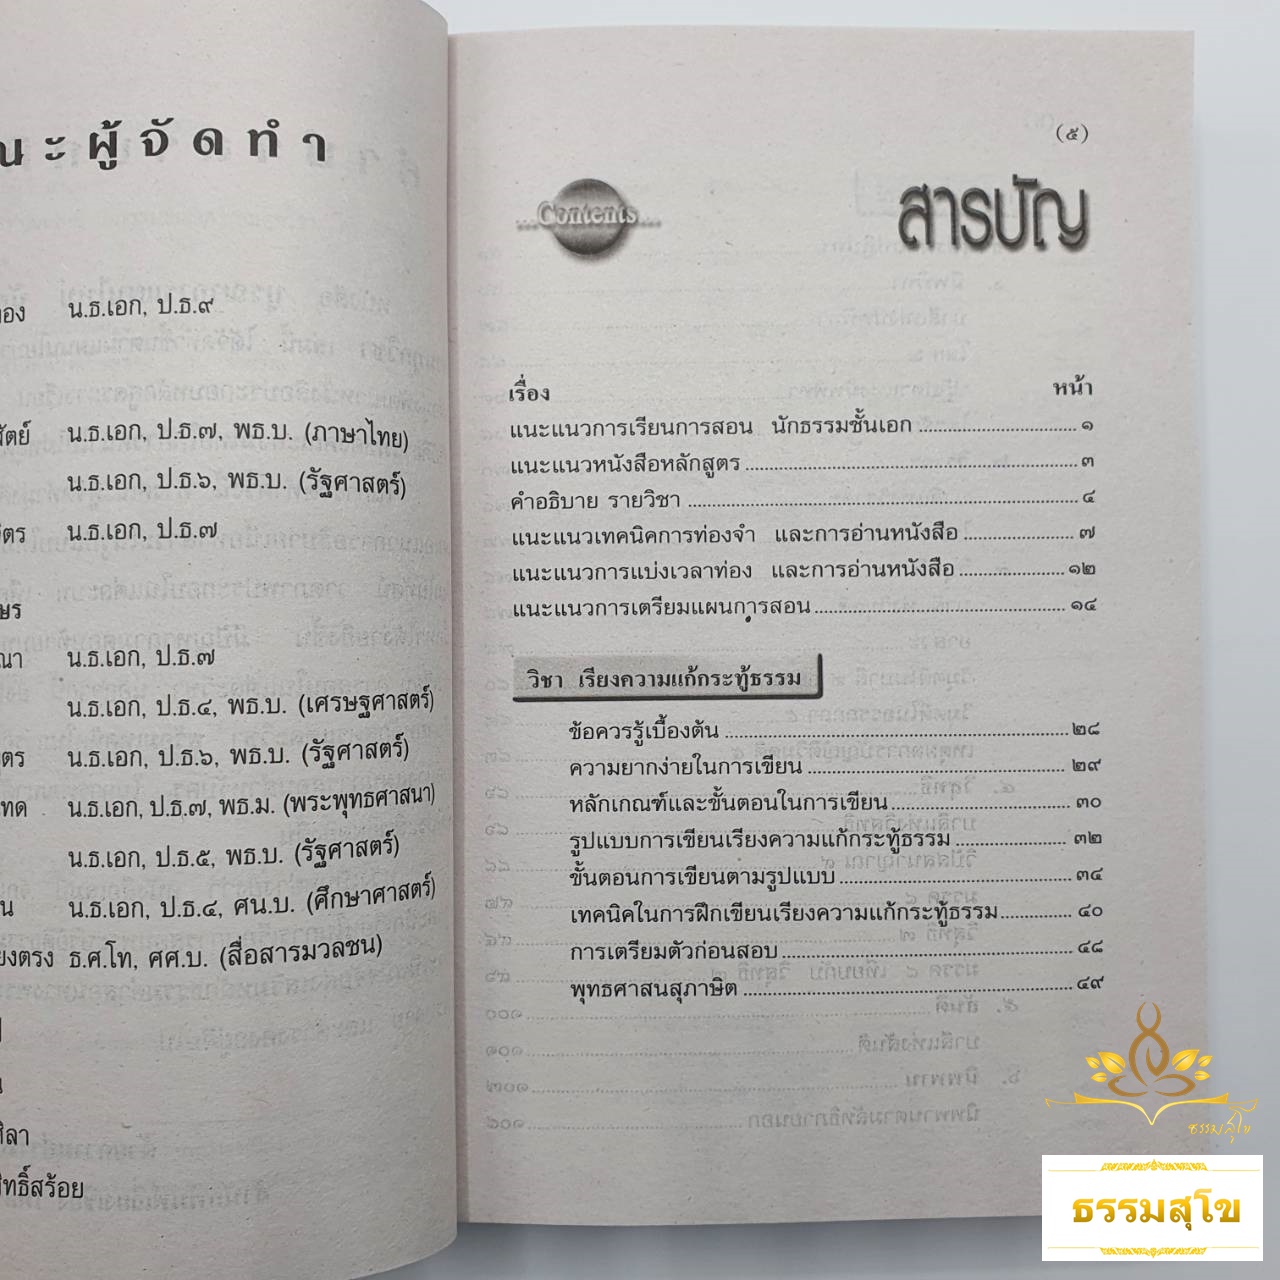 ณะผู้จัดทำ
น.ธ.เอก, ป.ธ.๙
น.ธ.เอก, ป.ธ.๗, พธ.บ. (ภาษาไทย)
น.ธ.เอก, ป.ธ.๖, พธ.บ. (รัฐศาสตร์)
น.ธ.เอก, ป.ธ.๗
น.ธ.เอก, ป.ธ.๗
น.ธ.เอก, ป.ธ.๔, พธ.บ. (เศรษฐศาสตร์)
น.ธ.เอก, ป.ธ.๖, พธ.บ. (รัฐศาสตร์)
น.ธ.เอก, ป.ธ.๗, พธ.ม. (พระพุทธศาสนา)
น.ธ.เอก, ป.ธ.๕, พธ.บ. (รัฐศาสตร์)
น.ธ.เอก, ป.ธ.๔, ศน.บ. (ศึกษาศาสตร์)
ธ.ศ.โท, ศศ.บ. (สื่อสารมวลชน)
(๕)
...Contents...
สารบัญ
เรื่อง หน้า
แนะแนวการเรียนการสอน นักธรรมชั้นเอก ๑
แนะแนวหนังสือหลักสูตร ๓
คำอธิบาย รายวิชา ๔
แนะแนวเทคนิคการท่องจำ และการอ่านหนังสือ ๗
แนะแนวการแบ่งเวลาท่อง และการอ่านหนังสือ ๑๒
แนะแนวการเตรียมแผนการสอน ๑๔
วิชา เรียงความแก้กระทู้ธรรม
ข้อควรรู้เบื้องต้น ๒๘
ความยากง่ายในการเขียน ๒๙
หลักเกณฑ์และขั้นตอนในการเขียน ๓๐
รูปแบบการเขียนเรียงความแก้กระทู้ธรรม ๓๒
ขั้นตอนการเขียนตามรูปแบบ ๓๔
เทคนิคในการฝึกเขียนเรียงความแก้กระทู้ธรรม ๔๐
การเตรียมตัวก่อนสอบ ๔๘
พุทธศาสนสุภาษิต ๔๙
ธรรมสุโข
ธรรมสุโข